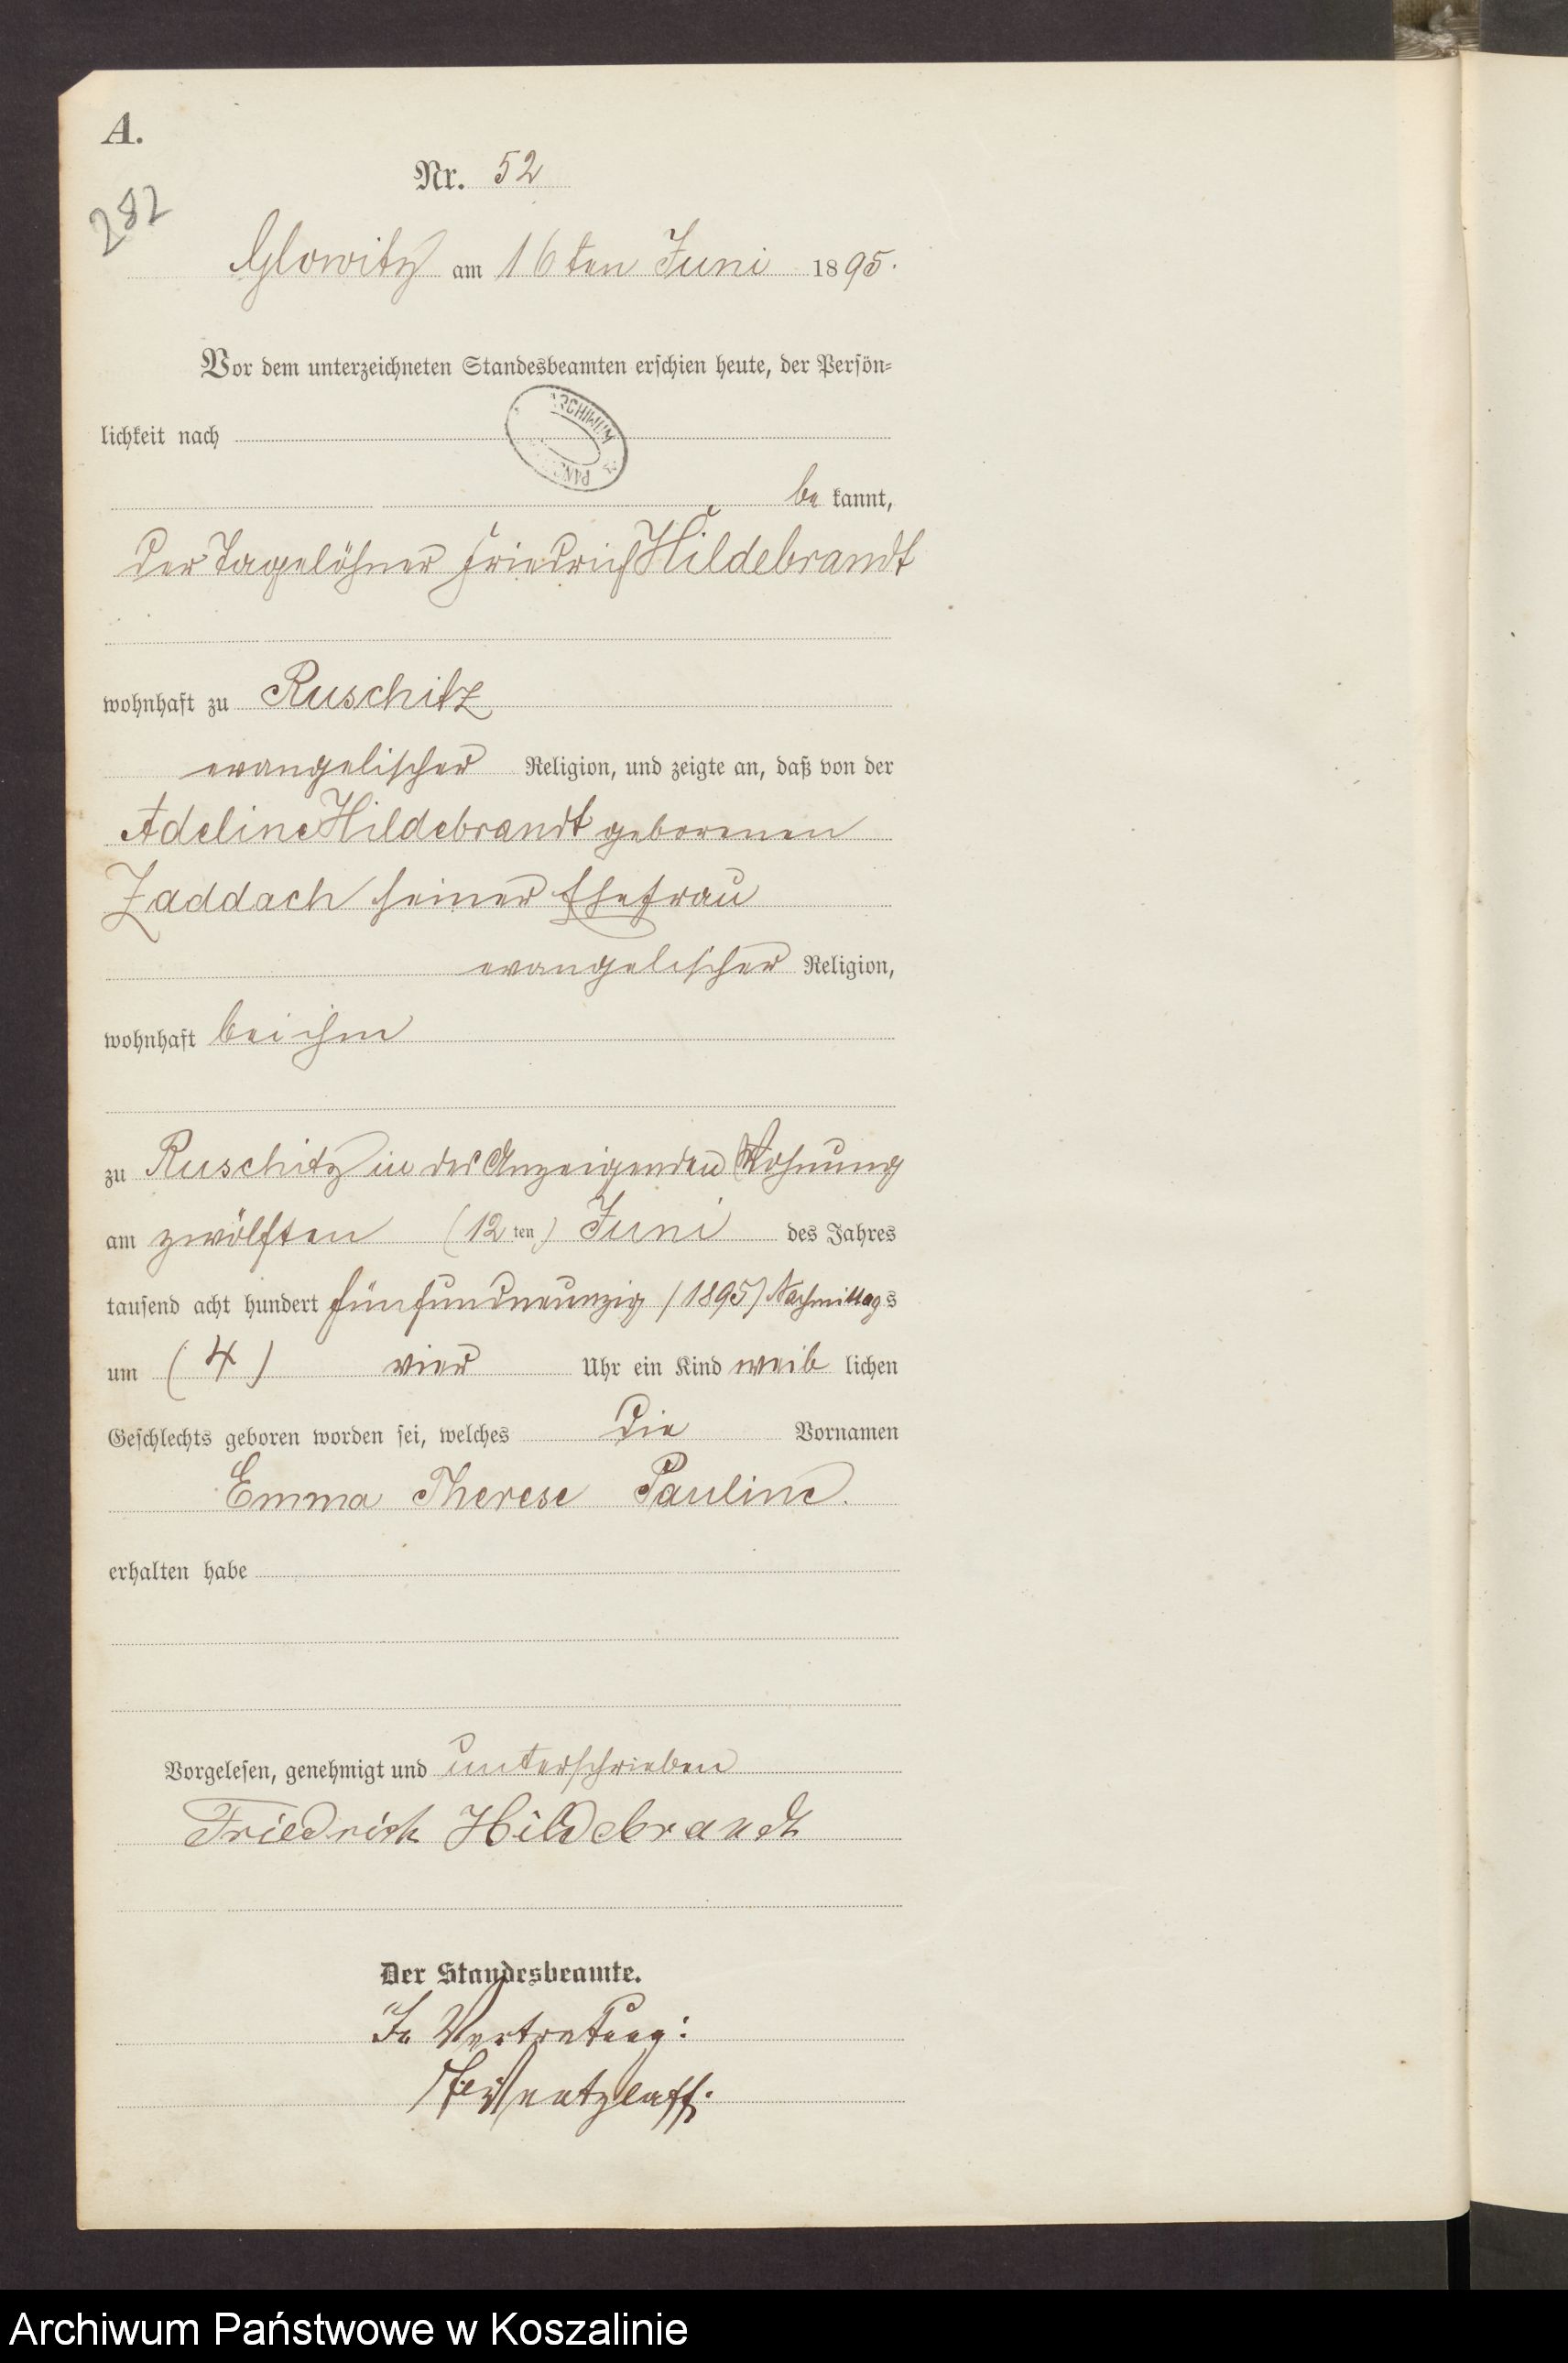 A.
Nr. 52
282
Glowitz am 16ten Juni 1895.
Vor dem unterzeichneten Standesbeamten erschien heute, der Persön=
lichkeit nach
ARCHIWUM
be kannt,
der Tagelöhner Friedrich Hildebrandt
wohnhaft zu Ruschitz
evangelischer Religion, und zeigte an, daß von der
Adeline Hildebrandt geborenen
Zaddach seiner Ehefrau
evangelischer Religion,
wohnhaft bei ihm
zu Ruschitz in des Anzeigenden Wohnung
am zwölften (12 ten) Juni des Jahres
tausend acht hundert fünfundneunzig (1895) Nachmittags
um (4) vier Uhr ein Kind weib lichen
Geschlechts geboren worden sei, welches die Vornamen
Emma Therese Pauline.
erhalten habe
Vorgelesen, genehmigt und unterschrieben
Friedrich Hildebrandt
Der Standesbeamte.
In Vertretung:
Archiwum Państwowe w Koszalinie